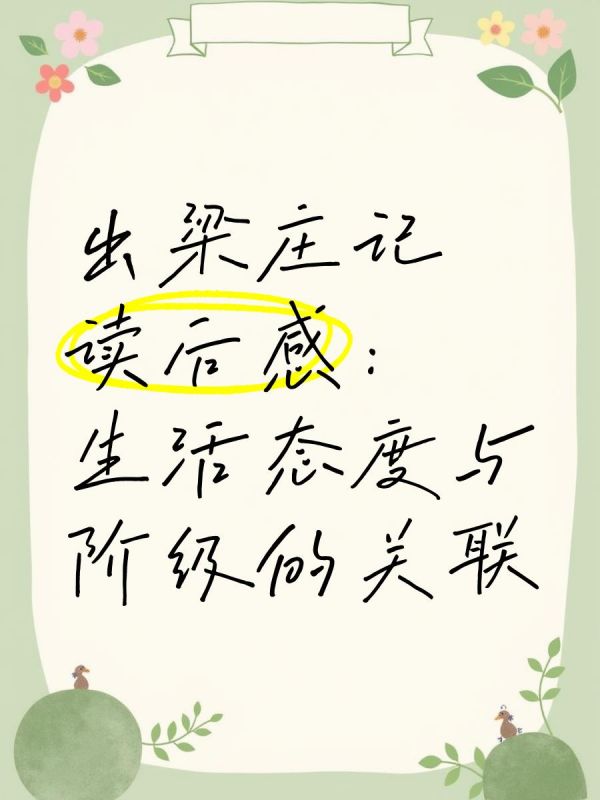 出梁庄记
读后感：
生活态度与
阶级的关联